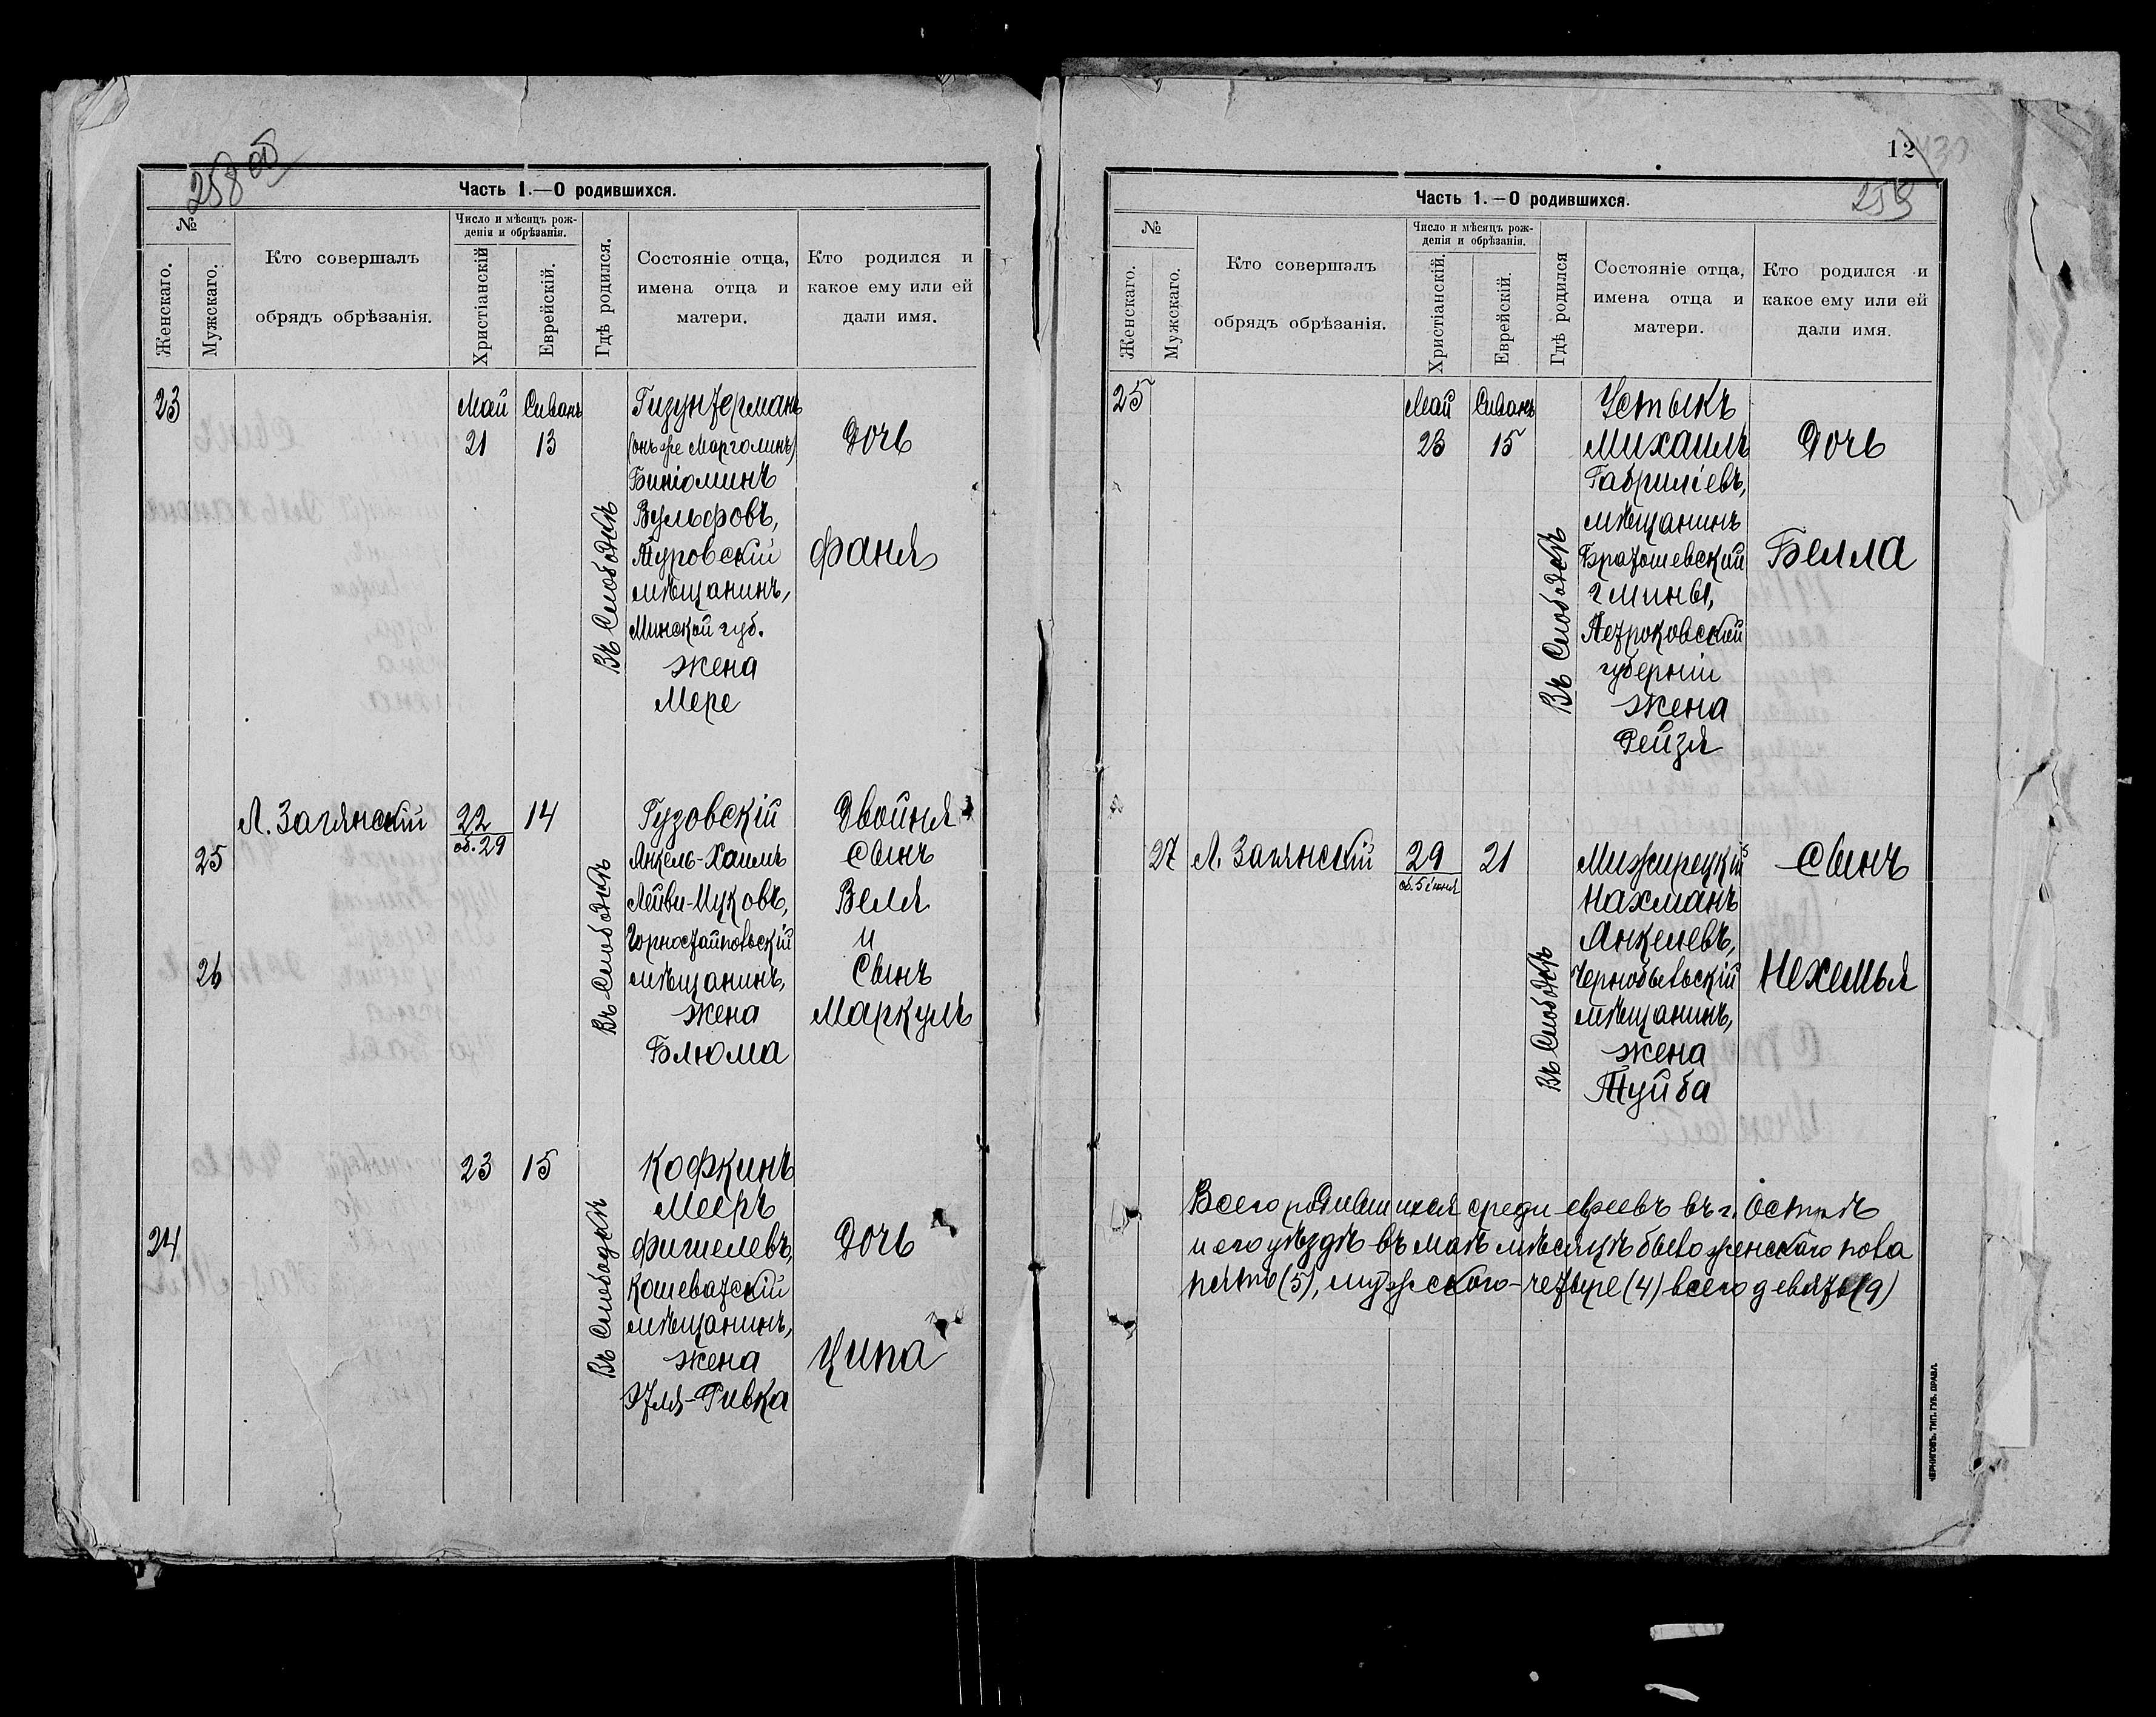 258 об
Часть 1.—О родившихся.
№
Женскаго.
Мужскаго.
Кто совершалъ
обрядъ обрѣзанія.
Число и мѣсяцъ рож-
денія и обрѣзанія.
Христіанскій
Еврейскій.
Гдѣ родился.
Состояніе отца,
имена отца и
матери.
Кто родился и
какое ему или ей
дали имя.
23
Май Сиванъ
21 13
Въ Слободкѣ
Гизунтерманъ
(онъ же Марголинъ)
Биніоминъ
Вульфовъ,
Туровскій
мѣщанинъ,
Минской губ.
жена
Мере
Дочь
Фаня
25
26
Л. Заганскій
22
об. 29
14
Въ Слободкѣ
Гузовскій
Анкель-Хаимъ
Лейви-Ицковъ,
Горностайпольскій
мѣщанинъ,
жена
Блюма
Двойня
Сынъ
Веля
и
Сынъ
Маркуль
24
23 15
Въ Слободкѣ
Кофкинъ
Мееръ
Фишелевъ,
Кошеватскій
мѣщанинъ,
жена
Этля-Ривка
Дочь
Ципа
12
259
Часть 1.—О родившихся.
№
Женскаго.
Мужскаго.
Кто совершалъ
обрядъ обрѣзанія.
Число и мѣсяцъ рож-
денія и обрѣзанія.
Христіанскій.
Еврейскій.
Гдѣ родился
Состояніе отца,
имена отца и
матери.
Кто родился и
какое ему или ей
дали имя.
25
Май Сиванъ
23 15
Въ Слободкѣ
Устыкъ
Михаилъ
Габриліевъ,
мѣщанинъ
Братошевской
гмины,
Петроковской
губерніи
жена
Рейзя
Дочь
Белла
27 Л. Заганскій
29
об. 5 іюня
21
Въ Слободкѣ
Мижирецкій
Нахманъ
Анкелевъ,
Чернобыльскій
мѣщанинъ,
жена
Туйба
Сынъ
Нехемья
Всего родившихся среди евреевъ въ г. Острѣ
и его уѣздѣ въ маѣ мѣсяцѣ было женскаго пола
пять (5), мужского-четыре (4) всего девять (9)
ЧЕРНИГОВЪ. ТИП. ГУБ. ПРАВЛ.